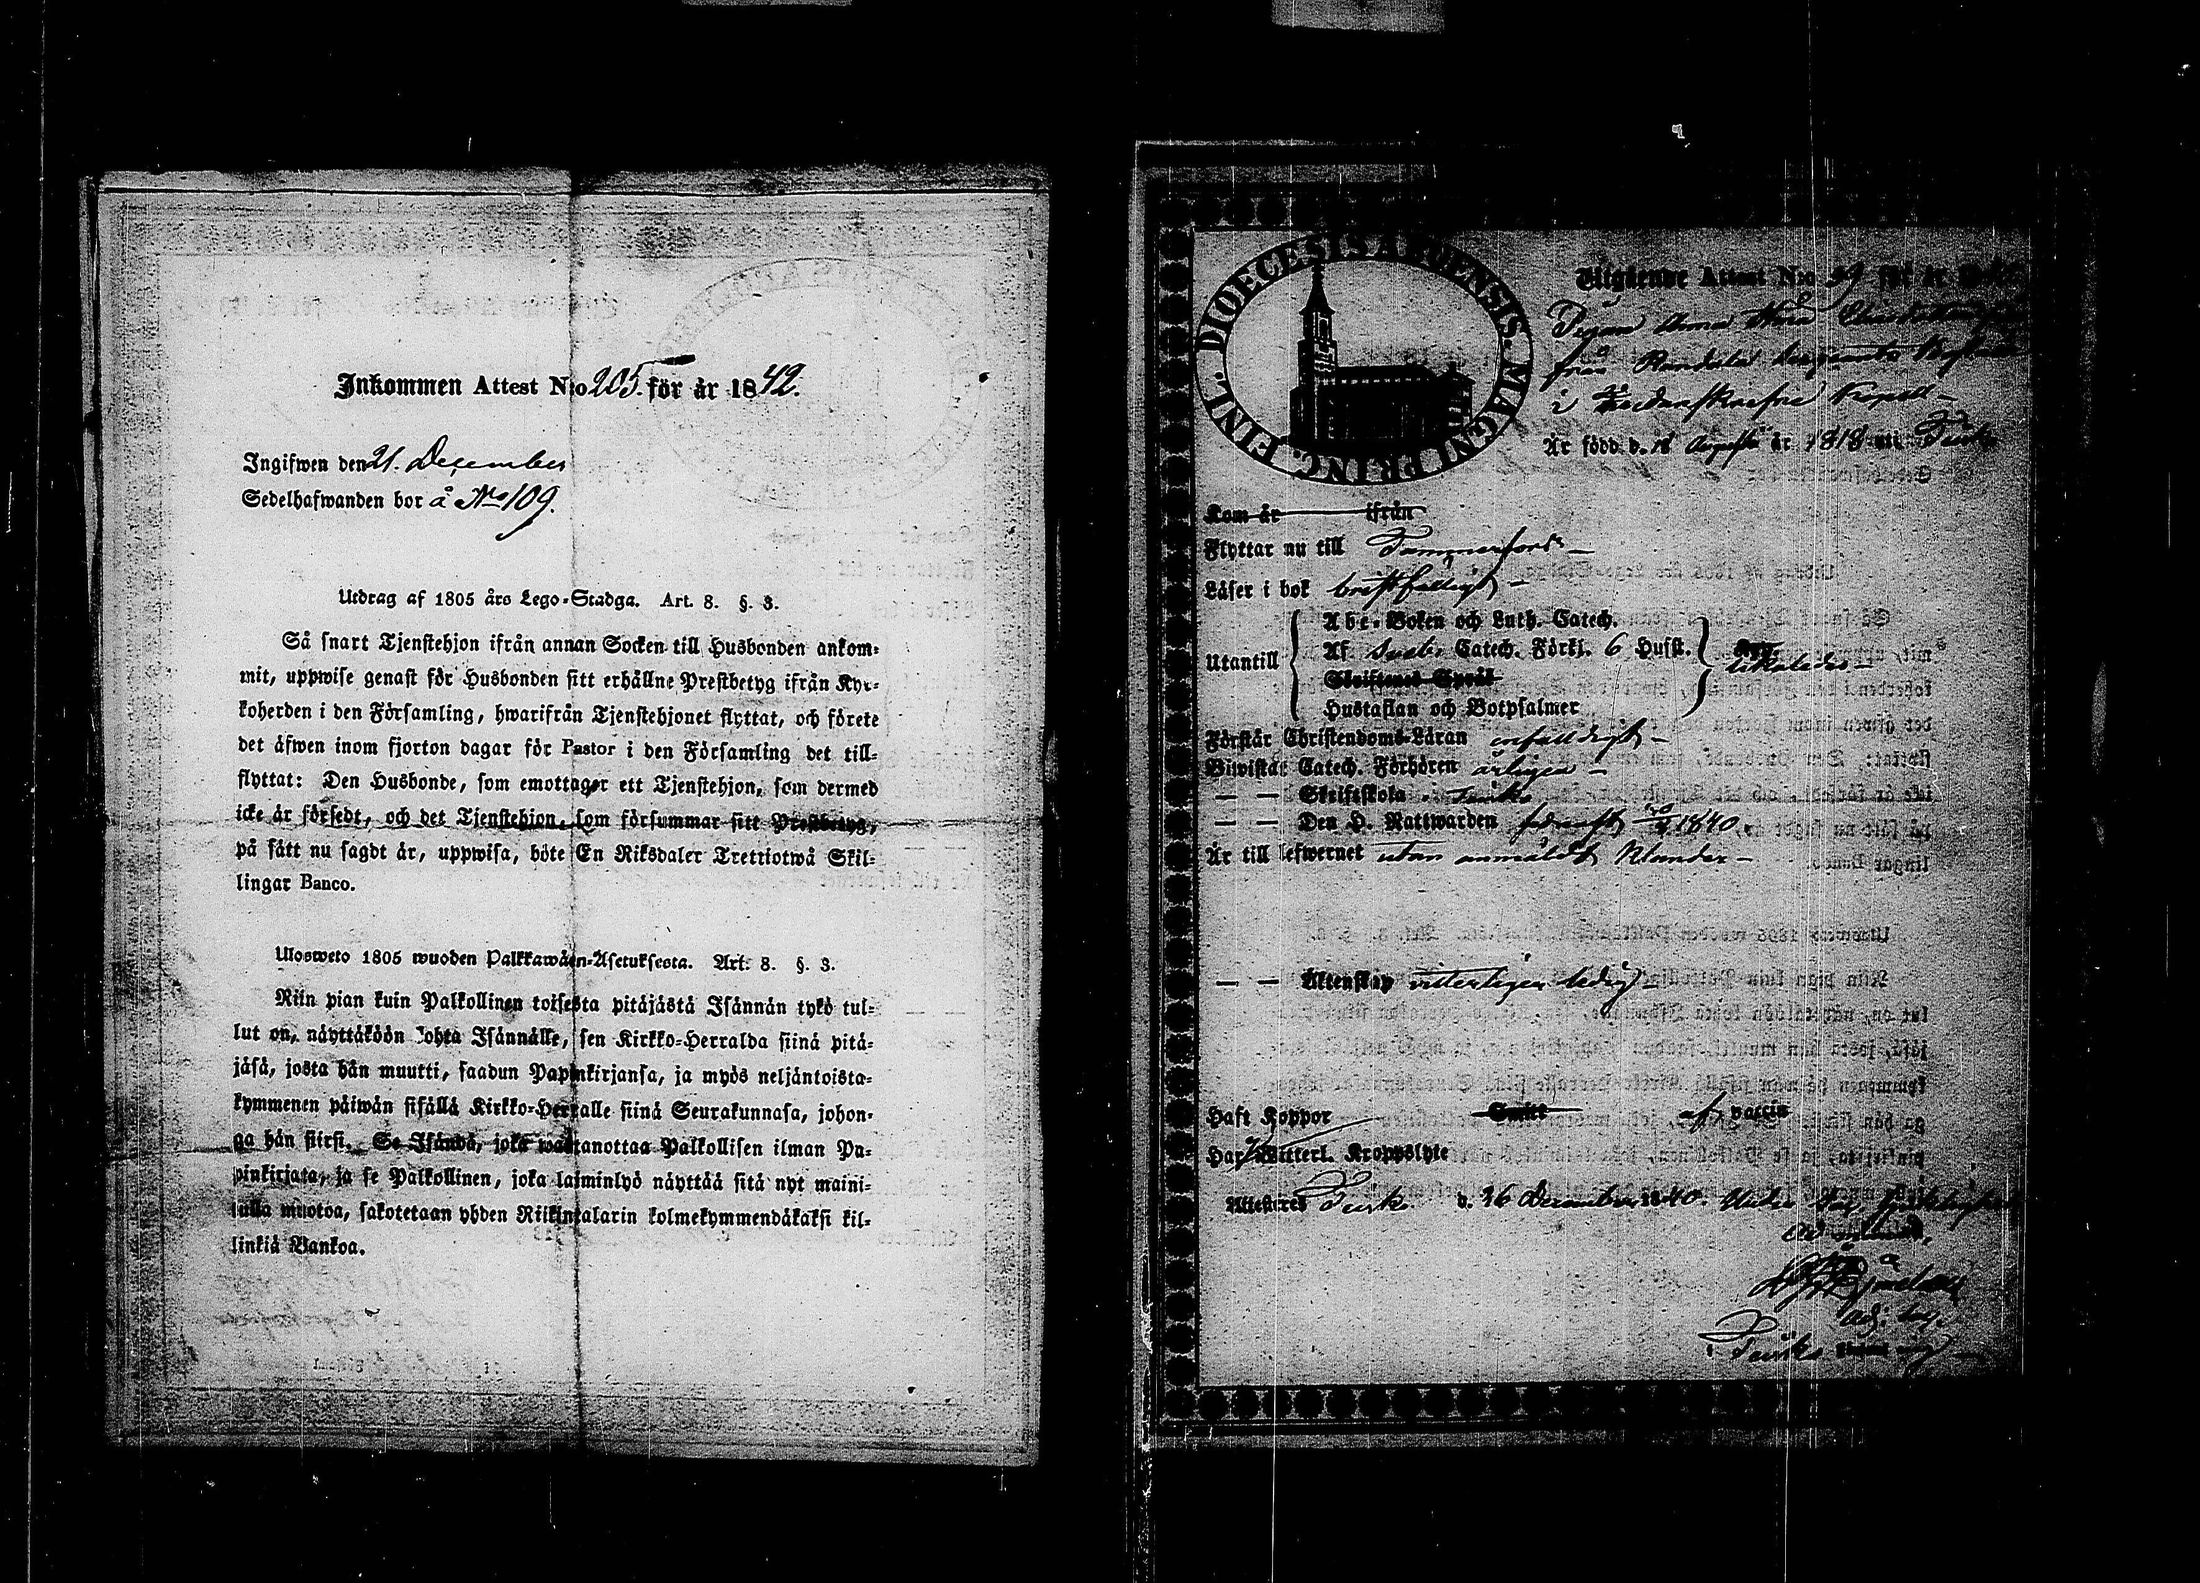 Inkommen Attest N:o 205. för år 1842.
Ingifwen den 21. December
Sedelhafwanden bor å No 109.
Utdrag af 1805 års Lego-Stadga. Art. 8. §. 3.
Så snart Tjenstehjon ifrån annan Socken till Husbonden ankom=
mit, uppwise genast för Husbonden sitt erhållne Prestbetyg ifrån Kyr=
koherden i den Församling, hwarifrån Tjenstehjonet flyttat, och förete
det äfwen inom fjorton dagar för Pastor i den Församling det till=
flyttat: Den Husbonde, som emottager ett Tjenstehjon, som dermed
icke är försedt, och det Tjenstehjon, som försummar sitt Prestbetyg,
på sätt nu sagdt är, uppwisa, böte En Riksdaler Trettiotwå Skil=
lingar Banco.
Ulosweto 1805 wuoden Palkkawäen-Asetuksesta. Art. 8. §. 3.
Niin pian kuin Palkollinen toisesta pitäjästä Isännän tykö tul=
lut on, näyttäköön kohta Isännälle, sen Kirkko=Herralda siinä pitä=
jäsä, josta hän muutti, saadun Papinkirjansa, ja myös neljäntoista=
kymmenen päiwän sisällä Kirkko=Herralle siinä Seurakunnasa, johon=
ga hän siirsi. Se Isändä, joka wastanottaa Palkollisen ilman Pa=
pinkirjata, ja se Palkollinen, joka laiminlyö näyttää sitä nyt maini=
tulla muotoa, sakotetaan yhden Riikintalarin kolmekymmendäkaksi kil=
linkiä Bankoa.
DIOECESIS ABOENSIS. MAGNI PRINC. FINL.
Utgående Attest N:o 39 för år
Pigan Anna
från
i Kapell
Är född d. 18 Augusti år 1818 uti
Kom år ifrån
Flyttar nu till Tammerfors
Läser i bok bristfälligt
Utantill
Abc-Boken och Luth. Catech.
Af Sveb. Catech. Förkl. 6 Hufst.
Skriftenes Språk
Hustaflan och Botpsalmer
likaledes
Förstår Christendoms-Läran enfaldigt
Biwistat Catech. Förhören årligen
— — Skriftskola
— — Den H. Nattwarden 1840.
Är till lefwernet utan anmäldt klander
— — Ägtenskap vitterligen ledig
Haft Koppor af vaccin
Har Witterl. Kroppslyte
Attesteras d. 16 December 1840.